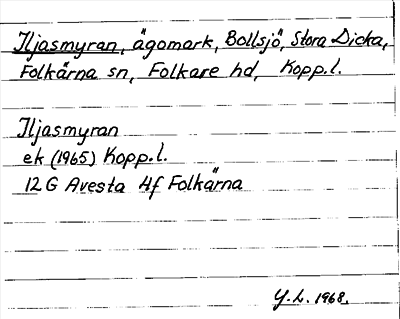 Iljasmyran, ägomark, Bollsjö, Stora Dicka,
Folkärna sn, Folkare hd, Kopp.l.
Iljasmyran
ek (1965) Kopp.l.
12 G Avesta 4f Folkärna
Y.L. 1968.